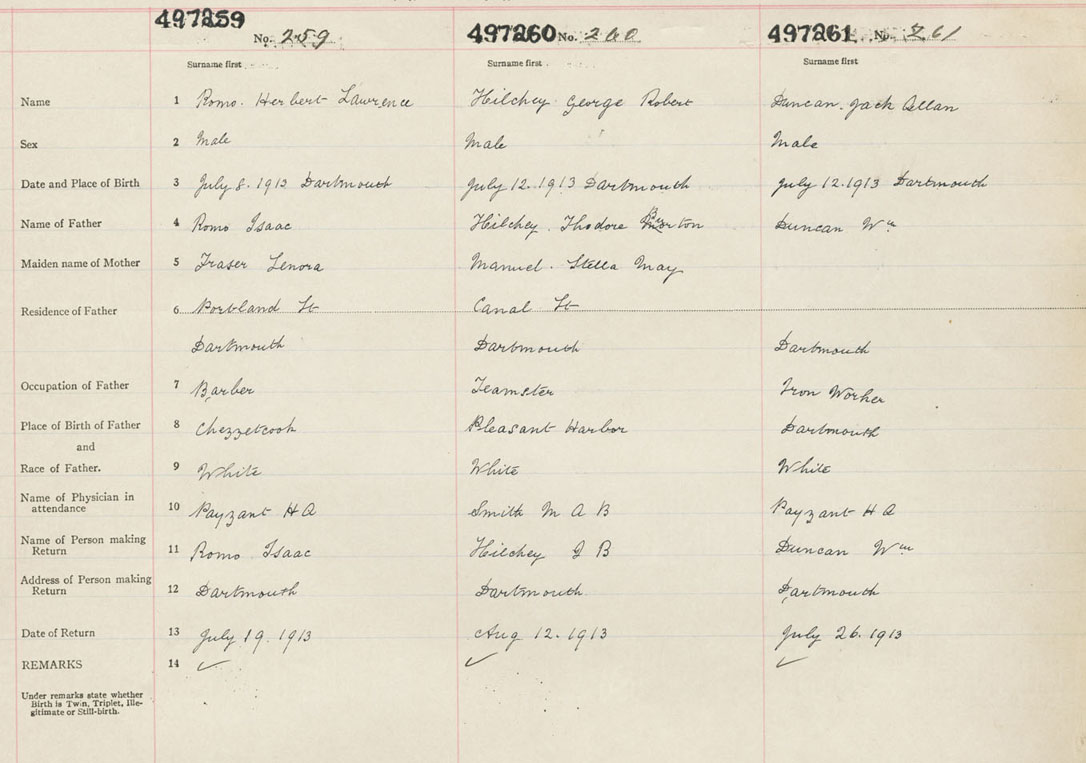 497259 No. 259 497260 No. 260 497261 No. 261
Surname first Surname first Surname first
Name 1 Romo. Herbert Lawrence Hilchey George Robert Duncan. Jack Allan
Sex 2 Male Male Male
Date and Place of Birth 3 July 8. 1913 Dartmouth July 12. 1913 Dartmouth July 12. 1913 Dartmouth
Name of Father 4 Romo Isaac Hilchey. Thodore Burton Duncan Wm
Maiden name of Mother 5 Fraser Lenora Manuel. Stella May
Residence of Father 6 Portland St Canal St
Dartmouth Dartmouth Dartmouth
Occupation of Father 7 Barber Teamster Iron Worker
Place of Birth of Father 8 Chezzetcook Pleasant Harbor Dartmouth
and
Race of Father. 9 White White White
Name of Physician in
attendance 10 Payzant H A Smith M A B Payzant H A
Name of Person making
Return 11 Romo Isaac Hilchey J B Duncan Wm
Address of Person making
Return 12 Dartmouth Dartmouth. Dartmouth
Date of Return 13 July 19. 1913 Aug 12. 1913 July 26. 1913
REMARKS 14 ✓ ✓ ✓
Under remarks state whether
Birth is Twin, Triplet, Ille-
gitimate or Still-birth.